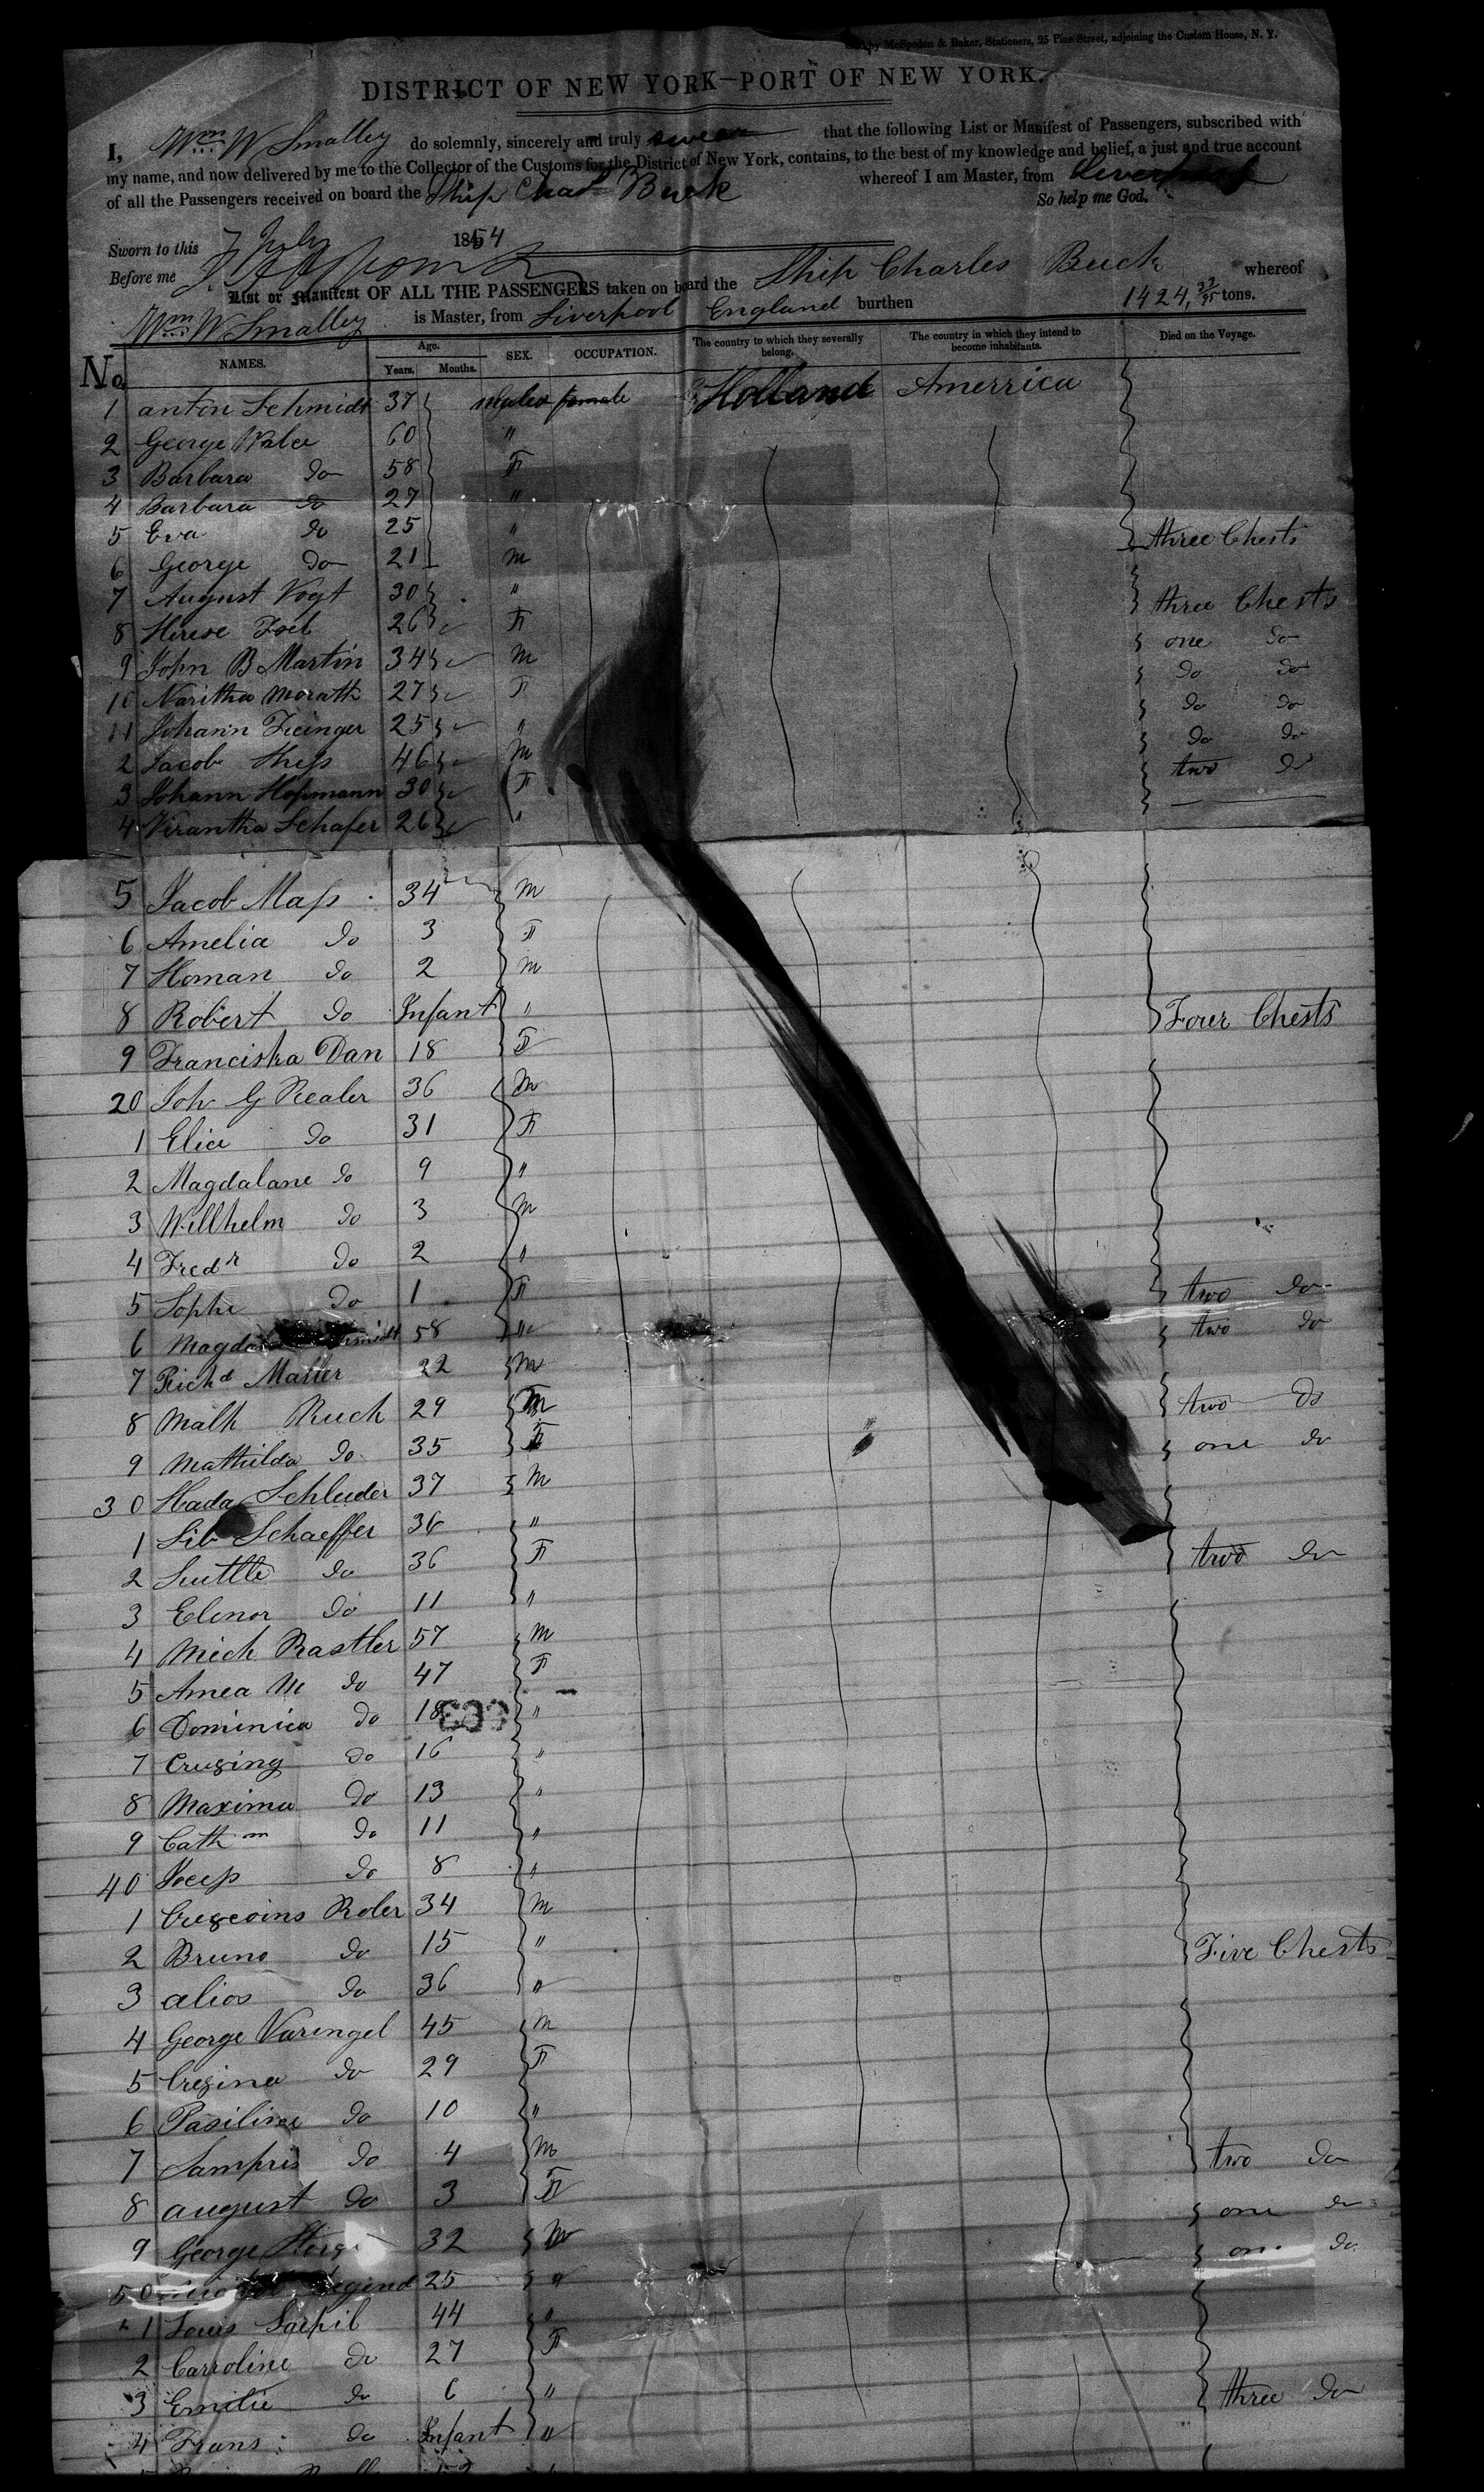 by McSpedon & Baker, Stationers, 25 Pine Street, adjoining the Custom House, N. Y.
DISTRICT OF NEW YORK—PORT OF NEW YORK.
I, Wm W Smalley do solemnly, sincerely and truly swear that the following List or Manifest of Passengers, subscribed with
my name, and now delivered by me to the Collector of the Customs for the District of New York, contains, to the best of my knowledge and belief, a just and true account
of all the Passengers received on board the Ship Chas Buck whereof I am Master, from Liverpool
So help me God.
Sworn to this 7 July 1854
Before me
List or Manifest OF ALL THE PASSENGERS taken on board the Ship Charles Buck whereof
Wm W Smalley is Master, from Liverpool England burthen 1424, 33/95 tons.
No NAMES. Age. Years. Months. SEX. OCCUPATION. The country to which they severally belong. The country in which they intend to become inhabitants. Died on the Voyage.
1 anton Schmidt 37 males female Holland Amerrica
2 George 60 "
3 Barbara do 58 F
4 Barbara do 27 "
5 Eva do 25 " three Chests
6 George do 21 M
7 August Vogt 30 " three Chests
8 Herese 26 F one do
9 John B Martin 34 M do do
10 Naritha Morath 27 F do do
11 Johann 25 " do do
2 Jacob 46 M two do
3 Johann Hopmann 30 F
4 Virantha Schafer 26 "
5 Jacob Mass 34 M
6 Amelia do 3 F
7 Homan do 2 M
8 Robert do Infant " Four Chests
9 Franciska Dan 18 F
20 Joh G Realer 36 M
1 Elia do 31 F
2 Magdalane do 9 "
3 Willhelm do 3 M
4 Fredr do 2 "
5 Sophi do 1 F two do
6 58 " two do
7 Richd Maller 22 M
8 Malh Ruch 29 M two do
9 Mathilda do 35 F one do
30 Hada Schluder 37 M
1 Lib Schaeffer 36 "
2 Suttle do 36 F two do
3 Elenor do 11 "
4 Mich Rastler 57 M
5 Amea M do 47 F
6 Dominica do 18 "
7 Crusing do 16 "
8 Maxima do 13 "
9 Cath m do 11 "
40 do 8 "
1 Roler 34 M
2 Bruno do 15 " Five Chests
3 alios do 36 "
4 George Varengel 45 M
5 Cresina do 29 F
6 Pasiline do 10 "
7 Sampris do 4 M two do
8 august do 3 F one do
9 George 32 M one do
50 25 "
1 Louis Sarpil 44 "
2 Carroline do 27 F
3 Emilie do 6 " three do
4 Frans do Infant "